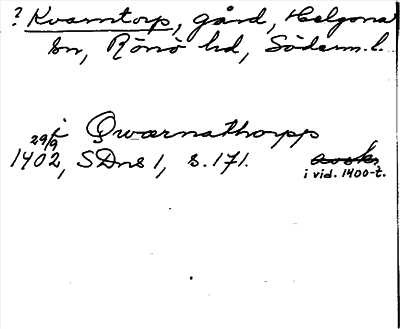 ? Kvarntorp, gård, Helgona
sn, Rönö hd, Söderm. l.
i Qwærnathorpp
29/9
1402, SDns 1, s. 171. avskr.
i vid. 1400-t.